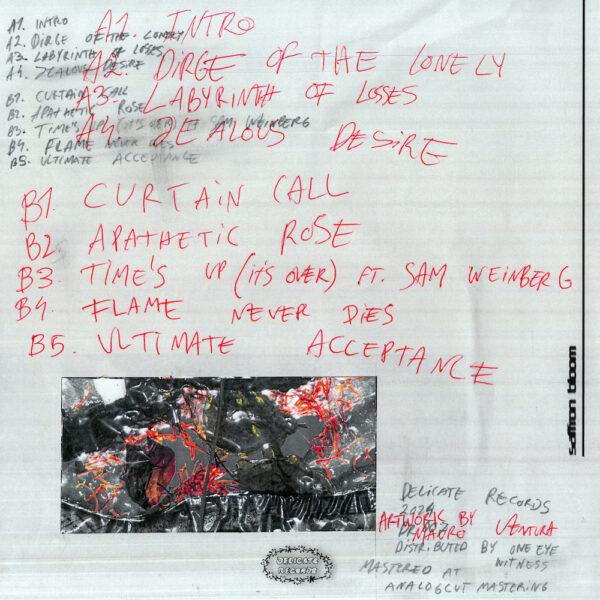 A1. INTRO
A2. DIRGE OF THE LONELY
A3. LABYRINTH OF LOSSES
A4. ZEALOUS DESIRE
B1. CURTAIN CALL
B2. APATHETIC ROSE
B3. TIME'S UP (IT'S OVER) FT SAM WEINBERG
B4. FLAME NEVER DIES
B5. ULTIMATE ACCEPTANCE
A1. INTRO
A2. DIRGE OF THE LONELY
A3. LABYRINTH OF LOSSES
A4. ZEALOUS DESIRE
B1. CURTAIN CALL
B2. APATHETIC ROSE
B3. TIME'S UP (IT'S OVER) FT. SAM WEINBERG
B4. FLAME NEVER DIES
B5. ULTIMATE ACCEPTANCE
saffron bloom
DELICATE RECORDS
2024
ARTWORK BY
MAURO VENTURA
DISTRIBUTED BY ONE EYE
WITNESS
MASTERED AT
ANALOGCUT MASTERING
DELICATE
RECORDS